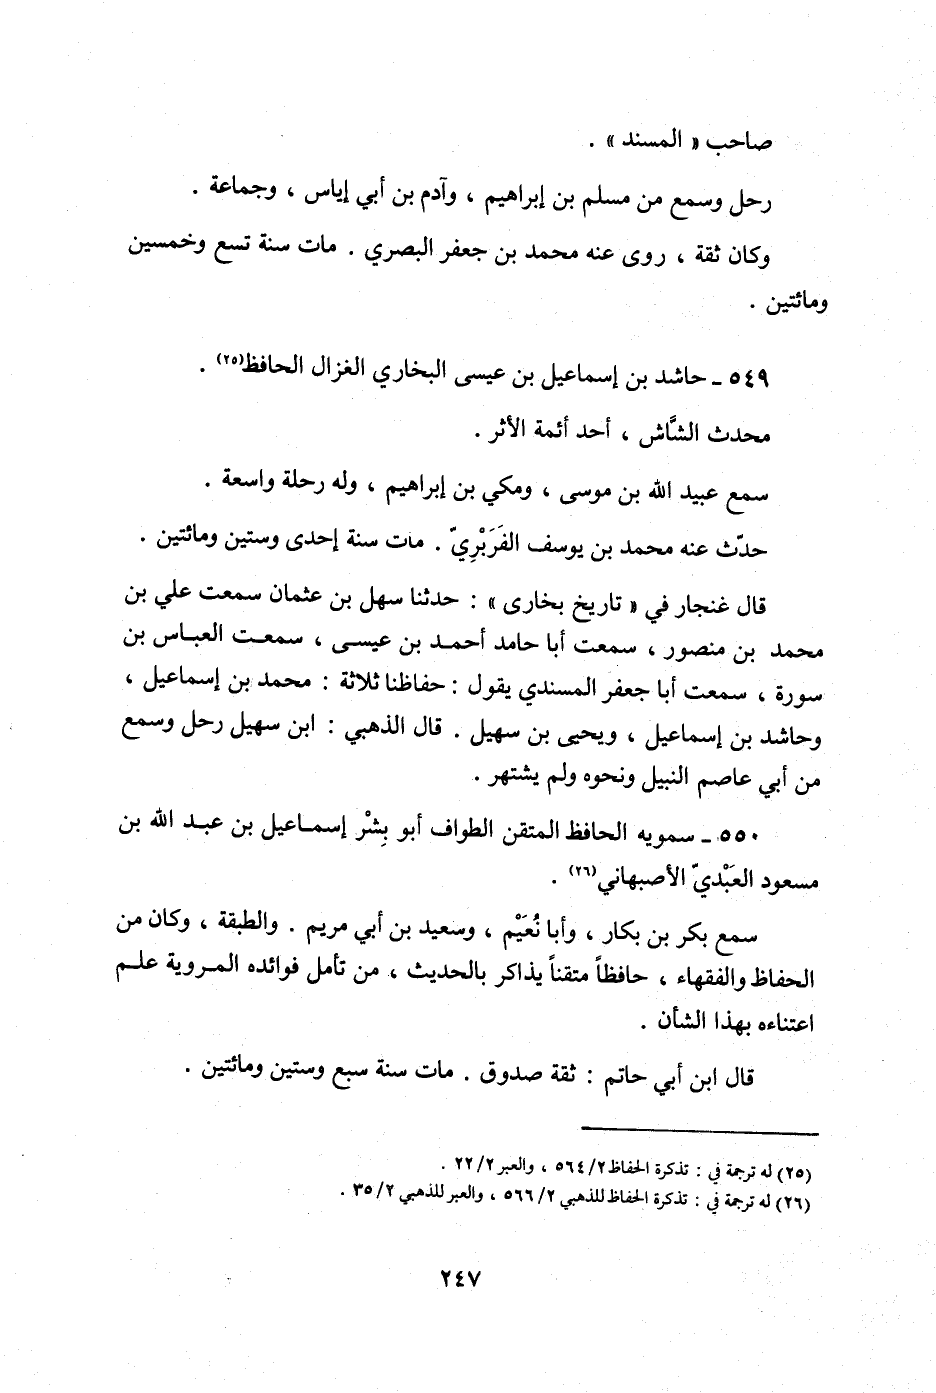 صاحب « المسند » .
رحل وسمع من مسلم بن إبراهيم ، وآدم بن أبي إياس ، وجماعة .
وكان ثقة ، روى عنه محمد بن جعفر البصري . مات سنة تسع وخمسين
ومائتين .
٥٤٩ ـ حاشد بن إسماعيل بن عيسى البخاري الغزال الحافظ(٢٥) .
محدث الشَّاش ، أحد أئمة الأثر .
سمع عبيد الله بن موسى ، ومكي بن إبراهيم ، وله رحلة واسعة .
حدّث عنه محمد بن يوسف الفَرَبْرِيّ . مات سنة إحدى وستين ومائتين .
قال غنجار في « تاريخ بخارى » : حدثنا سهل بن عثمان سمعت علي بن
محمد بن منصور ، سمعت أبا حامد أحمد بن عيسى ، سمعت العباس بن
سورة ، سمعت أبا جعفر المسندي يقول : حفاظنا ثلاثة : محمد بن إسماعيل ،
وحاشد بن إسماعيل ، ويحيى بن سهيل . قال الذهبي : ابن سهيل رحل وسمع
من أبي عاصم النبيل ونحوه ولم يشتهر .
٥٥٠ ـ سمويه الحافظ المتقن الطواف أبو بِشْر إسماعيل بن عبد الله بن
مسعود العَبْديّ الأصبهاني(٢٦) .
سمع بكر بن بكار ، وأبا نُعَيْم ، وسعيد بن أبي مريم . والطبقة ، وكان من
الحفاظ والفقهاء ، حافظاً متقناً يذاكر بالحديث ، من تأمل فوائده المروية علم
اعتناءه بهذا الشأن .
قال ابن أبي حاتم : ثقة صدوق . مات سنة سبع وستين ومائتين .
(٢٥) له ترجمة في : تذكرة الحفاظ ٢/ ٥٦٤ ، والعبر ٢/ ٢٢ .
(٢٦) له ترجمة في : تذكرة الحفاظ للذهبي ٢/ ٥٦٦ ، والعبر للذهبي ٢/ ٣٥ .
٢٤٧